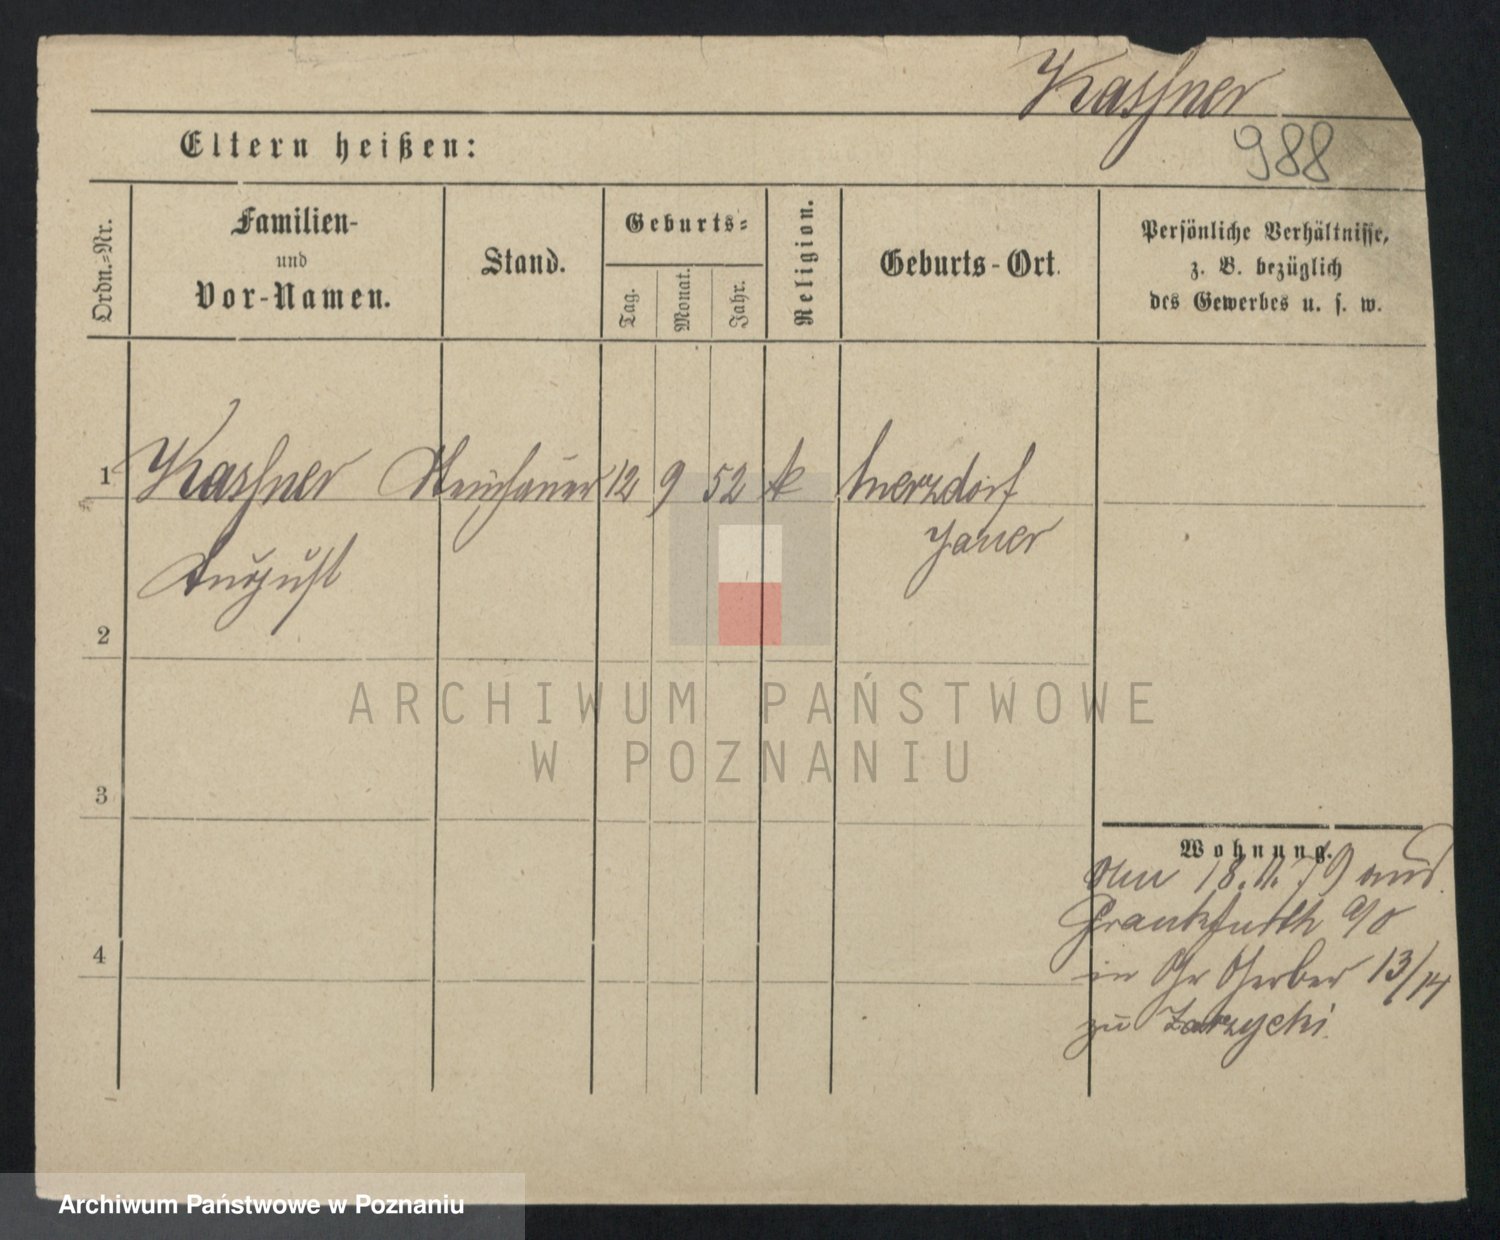 Kaschner
988
Eltern heißen:
Ordn.-Nr.
Familien-
und
Vor-Namen.
Stand.
Geburts-
Tag.
Monat.
Jahr.
Religion.
Geburts-Ort.
Persönliche Verhältnisse,
z. B. bezüglich
des Gewerbes u. s. w.
1 Kaschner Steinhauer 12 9 52 k Merzdorf
Jauer
August
2
ARCHIWUM PAŃSTWOWE
W POZNANIU
3
Wohnung.
18. 11. 79 aus
Frankfurth a/O
in Gr Gerber 13/14
zu Zarzycki
4
Archiwum Państwowe w Poznaniu